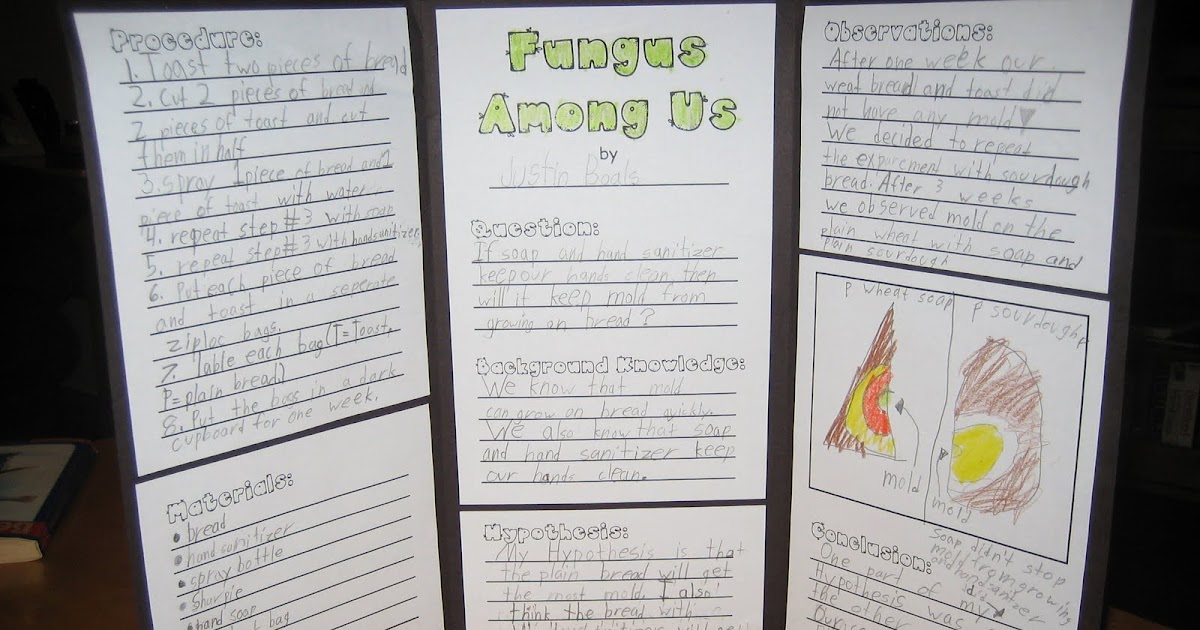 Procedure:
1. Toast two pieces of bread
2. Cut 2 pieces of bread and
2 pieces of toast and cut
them in half
3. spray 1 piece of bread and 1
piece of toast with water.
4. repeat step #3 with soap
5. repeat step #3 with hand sanitizer
6. Put each piece of bread
and toast in a seperate
ziploc bags.
7. lable each bag (T=Toast,
P=plain bread)
8. Put the bags in a dark
cupboard for one week.
Materials:
• bread
• hand sanitizer
• spray bottle
• sharpie
• hand soap
bag
Fungus
Among Us
by
Justin Boals
Question:
If soap and hand sanitizer
keep our hands clean then
will it keep mold from
growing on bread?
Background Knowledge:
We know that mold
can grow on bread quickly.
We also know that soap
and hand sanitizer keep
our hands clean.
Hypothesis:
My Hypothesis is that
the plain bread will get
the most mold. I also
think the bread with
Observations:
After one week our
weat bread and toast did
not have any mold
We decided to repeat
the exparcment with sourdough
bread. After 3 weeks
we observed mold on the
plain wheat with soap and
plain sourdough
P wheat soap
P sourdough
mold
mold
Conclusion:
Soap didn't stop
mold from growing
and hand sanitize
did
One part of my
Hypothesis was
the other